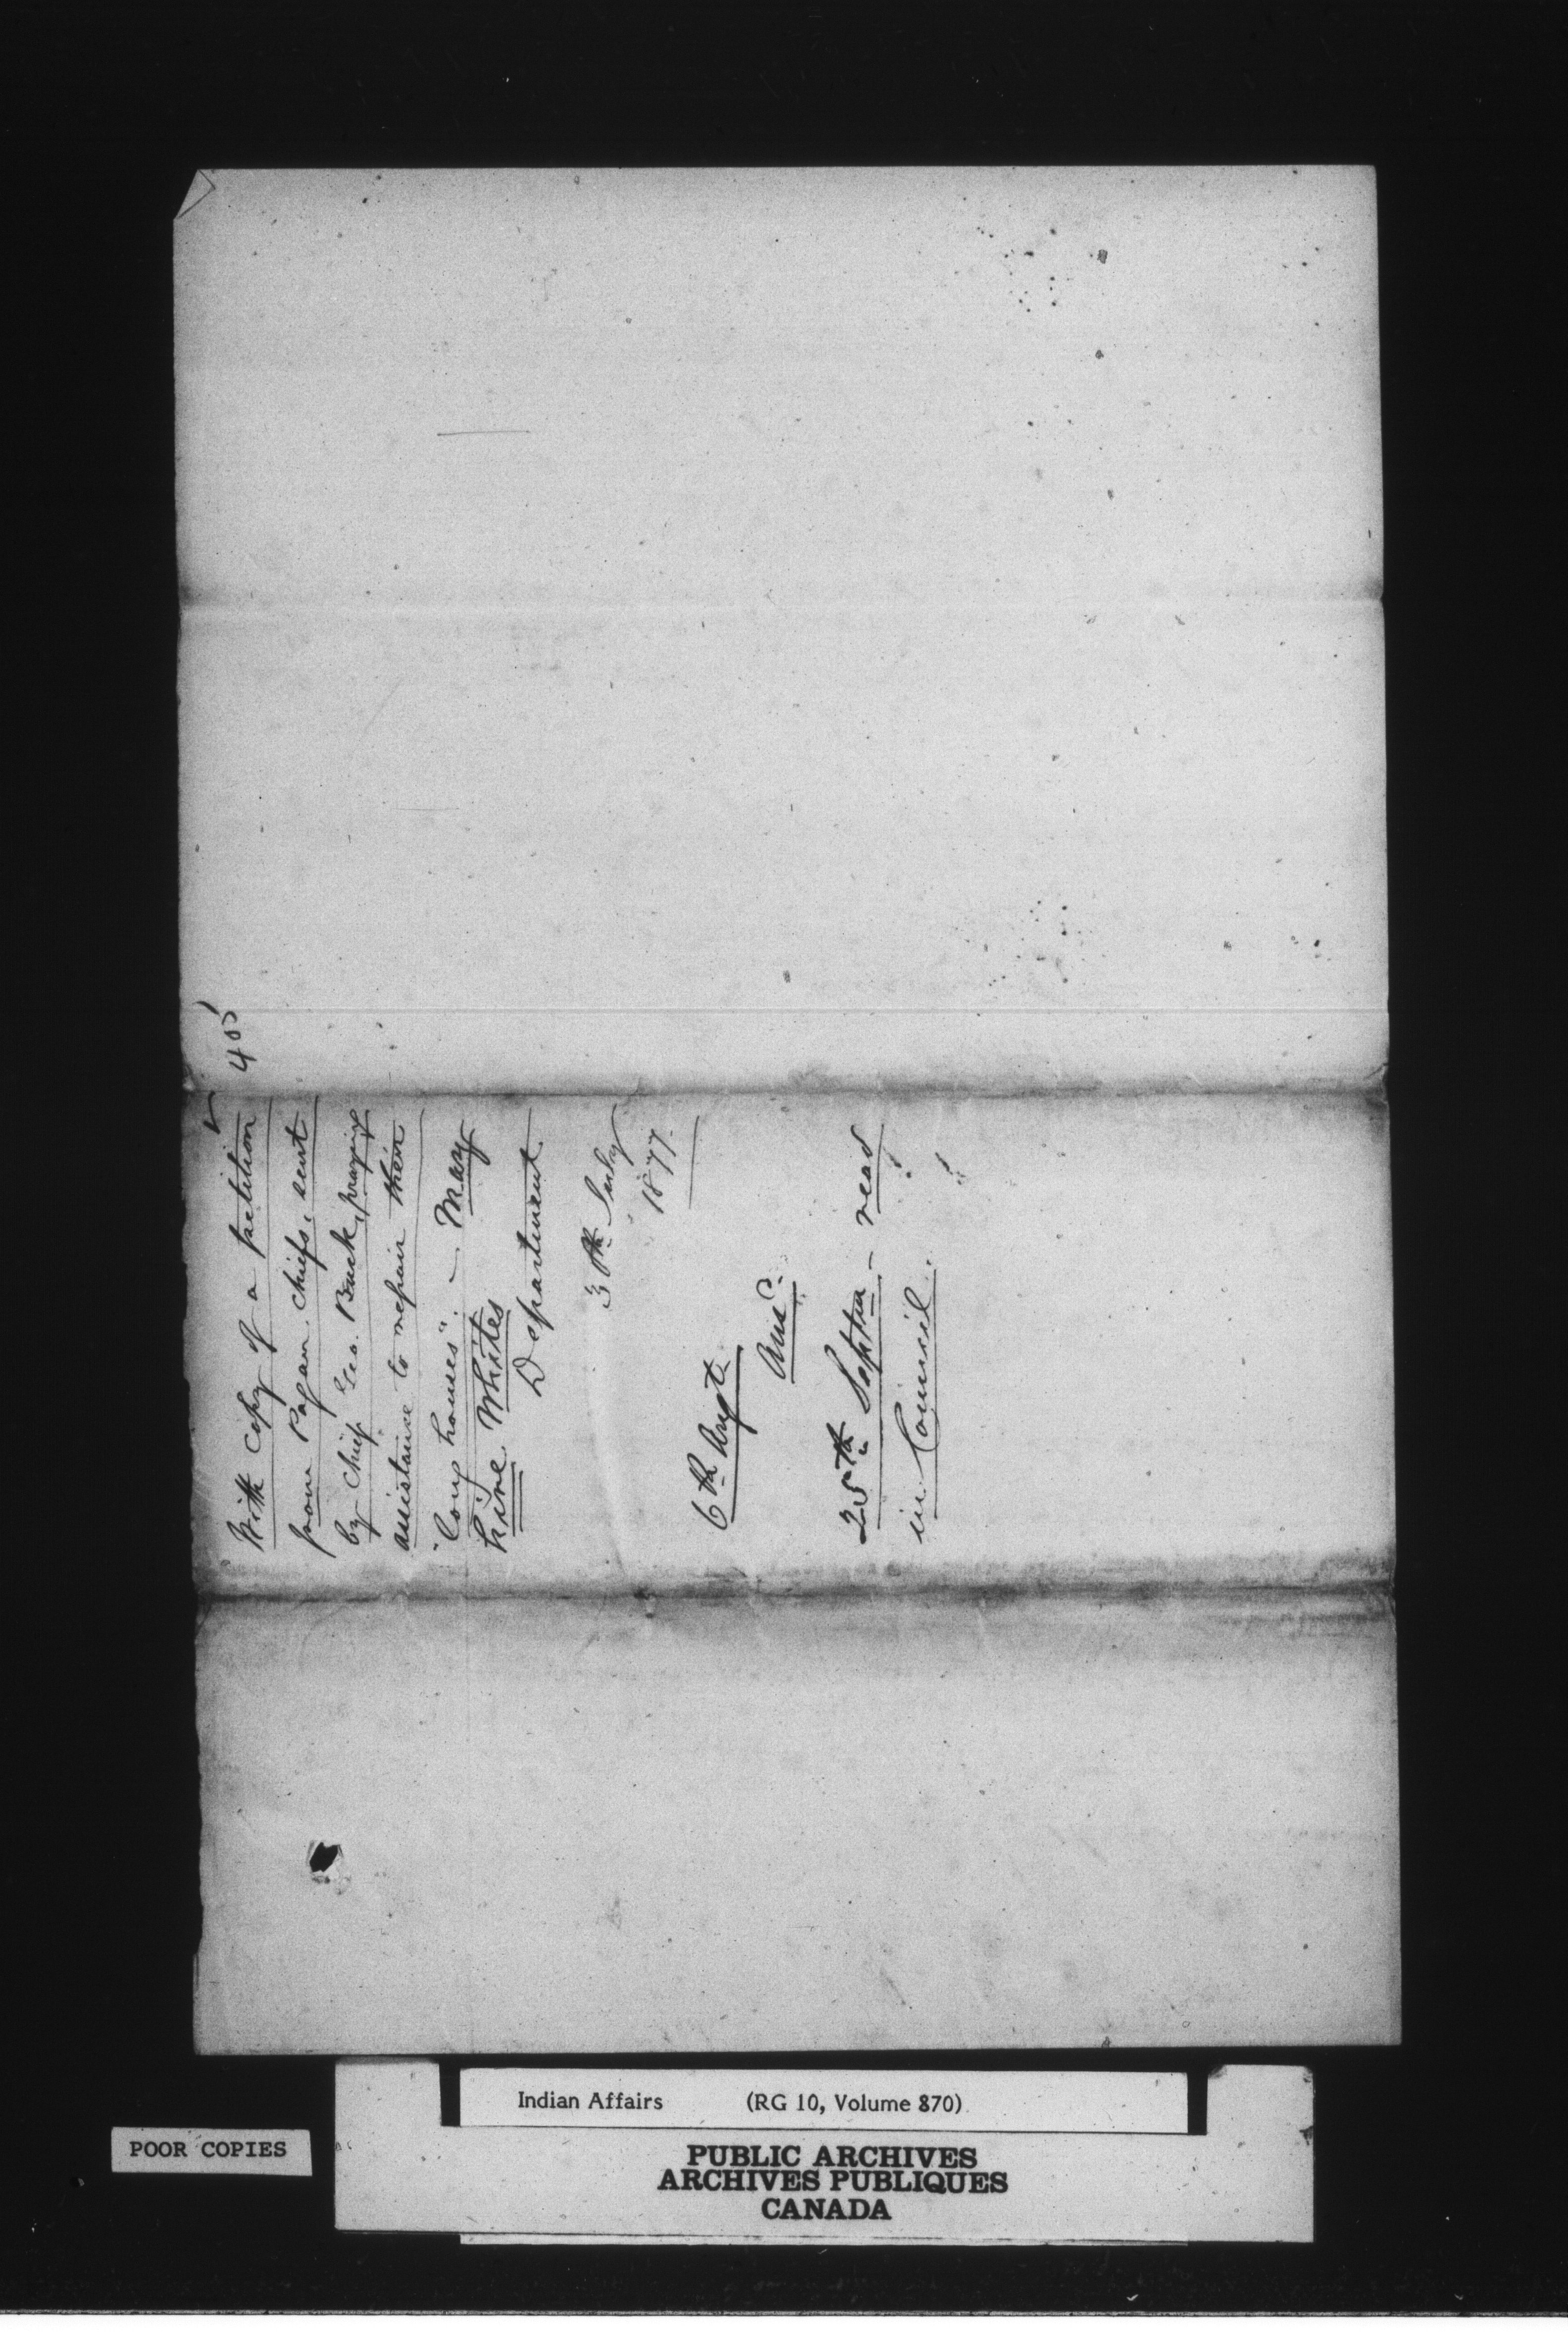 405
With copy of a petition
from Pagan Chiefs, sent
by Chief Geo. Buck, praying
assistance to repair their
"long houses". – May
hire Whites
Department
30th July
1877.
6th Augt.
Ansd.
25th Septr. – read
in Council.
Indian Affairs (RG 10, Volume 870)
POOR COPIES
PUBLIC ARCHIVES
ARCHIVES PUBLIQUES
CANADA